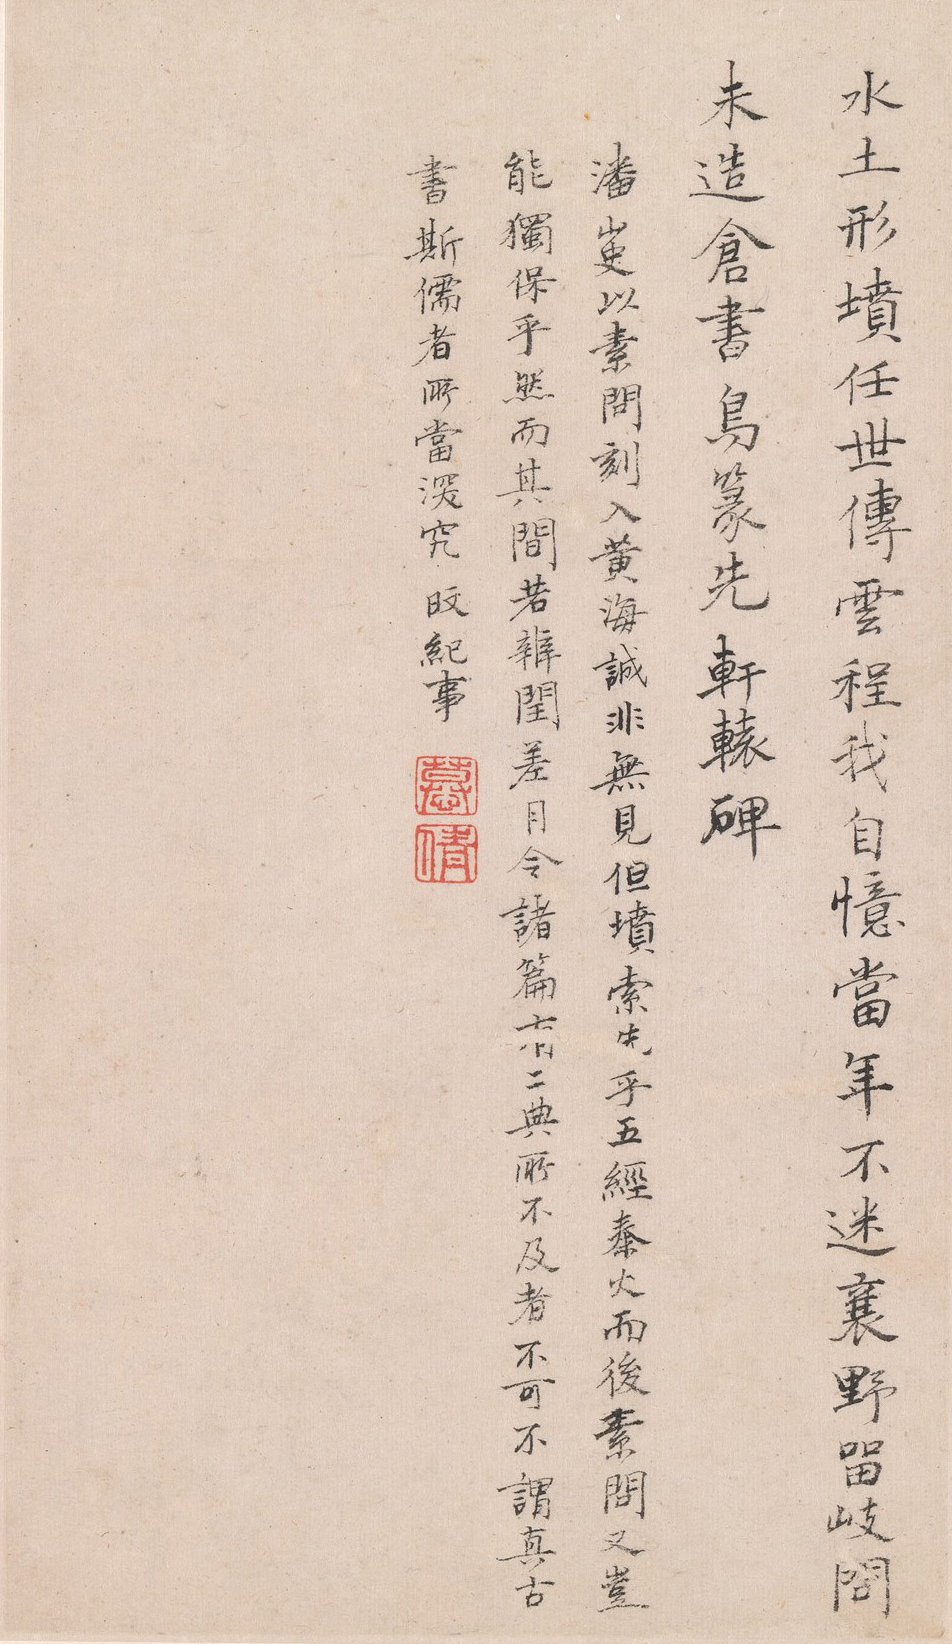 水土形墳任世傳雲程我自憶當年不迷襄野留岐問
未造倉書鳥篆先 軒轅碑
潘㕝以素問刻入黃海誠非無見但墳索先乎五經秦火而後素問又豈
能獨保乎然而其間若辨閏差月令諸篇有二典所不及者不可不謂真古
書斯儒者所當深究 旼紀事
慕倩